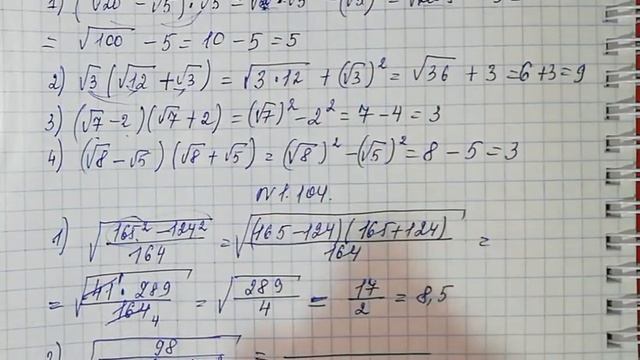 = √100 - 5 = 10 - 5 = 5
2) √3 (√12 + √3) = √3·12 + (√3)² = √36 + 3 = 6+3 = 9
3) (√7 - 2)(√7 + 2) = (√7)² - 2² = 7 - 4 = 3
4) (√8 - √5)(√8 + √5) = (√8)² - (√5)² = 8 - 5 = 3
N 1.104.
1) √(165² - 124²)/164 = √(165-124)(165+124)/164 =
= √41¹·289/164₄ = √289/4 = 17/2 = 8,5
2) √98 =